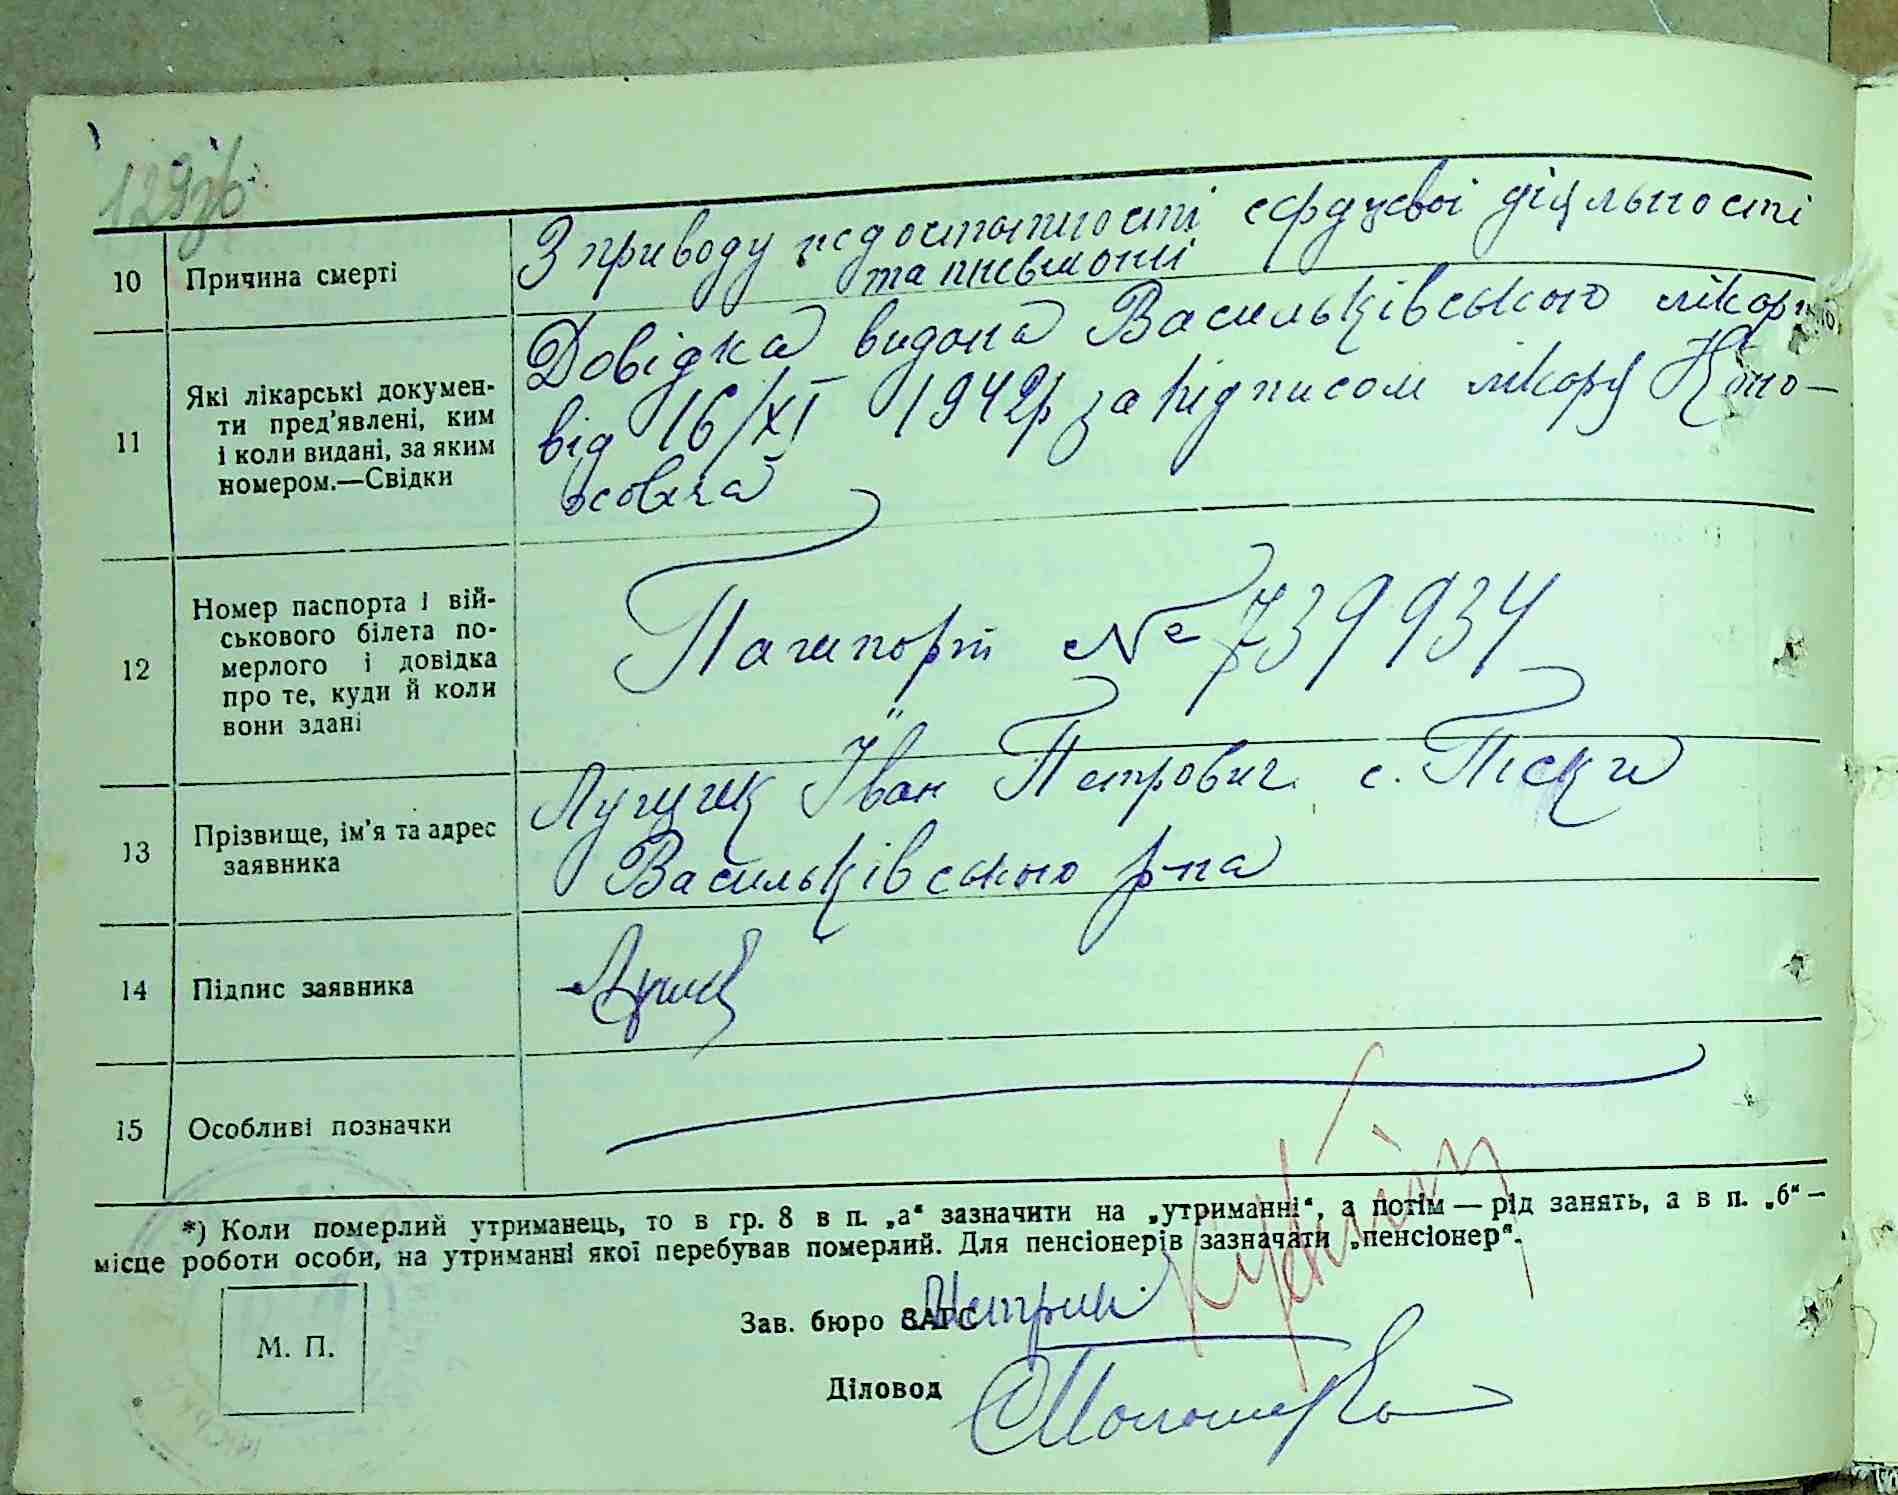 129зв.
10 Причина смерті З приводу недостатності сердцевої діяльності
та пневмонії
11 Які лікарські докумен-
ти пред'явлені, ким
і коли видані, за яким
номером.—Свідки
Довідка видана Васильківською лікарнею
від 16/XI 1942р за підписом лікаря Коно-
12 Номер паспорта і вій-
ськового білета по-
мерлого і довідка
про те, куди й коли
вони здані
Пашпорт № 739934
13 Прізвище, ім'я та адрес
заявника
Лущик Іван Петрович с. Піски
Васильківського р-на
14 Підпис заявника
15 Особливі позначки
*) Коли померлий утриманець, то в гр. 8 в п. „а“ зазначити на „утриманні“, а потім — рід занять, а в п. „б“ —
місце роботи особи, на утриманні якої перебував померлий. Для пенсіонерів зазначати „пенсіонер“.
М. П.
Зав. бюро ЗАГС
Діловод